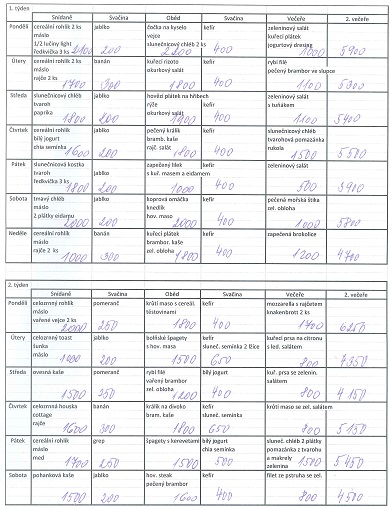 1. týden
Snídaně Svačina Oběd Svačina Večeře 2. večeře
Pondělí cereální rohlík 2 ks jablko čočka na kyselo kefír zeleninový salát
máslo vejce kuřecí plátek
1/2 lučiny light slunečnicový chléb 2 ks jogurtový dresing
ředkvička 3 ks 2100 200 2200 400 1000 5900
Úterý cereální rohlík banán kuřecí rizoto kefír rybí filé
máslo okurkový salát pečený brambor ve slupce
rajče 2 ks 1700 300 1800 400 1100 5300
Středa slunečnicový chléb jablko hovězí plátek na hřibech kefír zeleninový salát
tvaroh rýže s tuňákem
paprika 1800 200 okurkový salát 1900 400 1100 5400
Čtvrtek cereální rohlík jablko pečený králík kefír slunečnicový chléb
bílý jogurt bramb. kaše tvarohová pomazánka
chia semínka 1600 200 rajč. salát 1800 400 rukola 1500 5500
Pátek slunečnicová kostka jablko zapečený filek kefír zeleninový salát
tvaroh s kuř. masem a eidamem
ředkvička 3 ks 1800 200 1000 400 500 3900
Sobota tmavý chléb jablko koprová omáčka kefír pečená mořská štika
máslo knedlík zel. obloha
2 plátky eidamu 2000 200 hov. maso 2000 400 1000 5800
Neděle cereální rohlík banán kuřecí plátek kefír zapečená brokolice
máslo brambor. kaše
rajče 2 ks 1000 300 zel. obloha 1800 400 1200 4700
2. týden
Snídaně Svačina Oběd Svačina Večeře 2. večeře
Pondělí celozrnný rohlík pomeranč krůtí maso s cereál. kefír mozzarella s rajčetem
máslo těstovinami knakenbrott 2 ks
vařená vejce 2 ks 2000 250 1800 400 1700 6250
Úterý celozrnný toast jablko boltské špagety kefír kuřecí prsa na citronu
šunka s hov. masa sluneč. semínka 2 lžíce s led. salátem
máslo 200 1500 650 800
Středa ovesná kaše pomeranč rybí filé bílý jogurt kuř. prsa se zelenin.
vařený brambor salátem
1500 zel. obloha 1200 400 800 4150
Čtvrtek celozrnná houska banán králík na divoko kefír krůtí maso se zel. salátem
cottage bram. kaše sluneč. semínka
rajče 1600 300 1800 650 800 5150
Pátek cereální rohlík grep špagety s krevetami bílý jogurt sluneč. chléb 2 plátky
máslo chia semínka pomazánka z tvarohu
med 1700 250 1500 500 a makrely
zelenina 1500 5450
Sobota pohanková kaše jablko hov. steak kefír filet ze pstruha se zel.
pečený brambor
1500 200 1600 400 800 4500